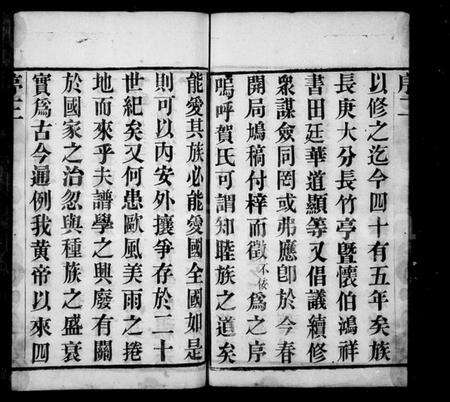 序二
以修之迄今四十有五年矣族
長庚大分長竹亭暨懷伯鴻祥
書田廷華道顯等又倡議續修
衆謀僉同罔或弗應卽於今春
開局鳩稿付梓而徵不佞爲之序
嗚呼賀氏可謂知睦族之道矣
能愛其族必能愛國全國如是
則可以內安外攘爭存於二十
世紀矣又何患歐風美雨之捲
地而來乎夫譜學之興廢有關
於國家之治忽與種族之盛衰
實爲古今遍例我黃帝以來四
序三